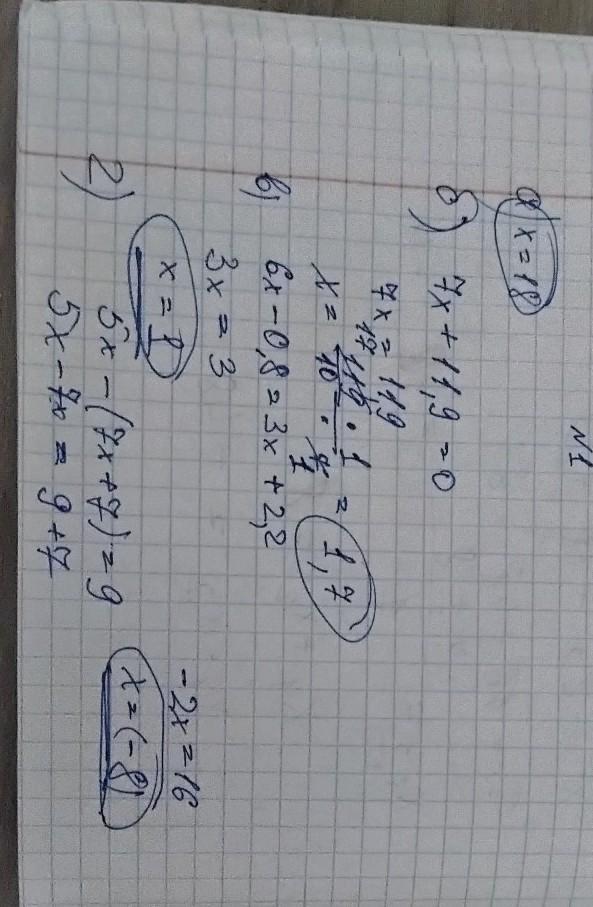 N1
а) x = 18
б) 7x + 11,9 = 0
7x = 11,9
x = 17 119/10 · 1/7 1 = 1,7
в) 6x - 0,8 = 3x + 2,2
3x = 3
x = 1
г) 5x - (7x + 7) = 9
5x - 7x = 9 + 7
-2x = 16
x = (-8)